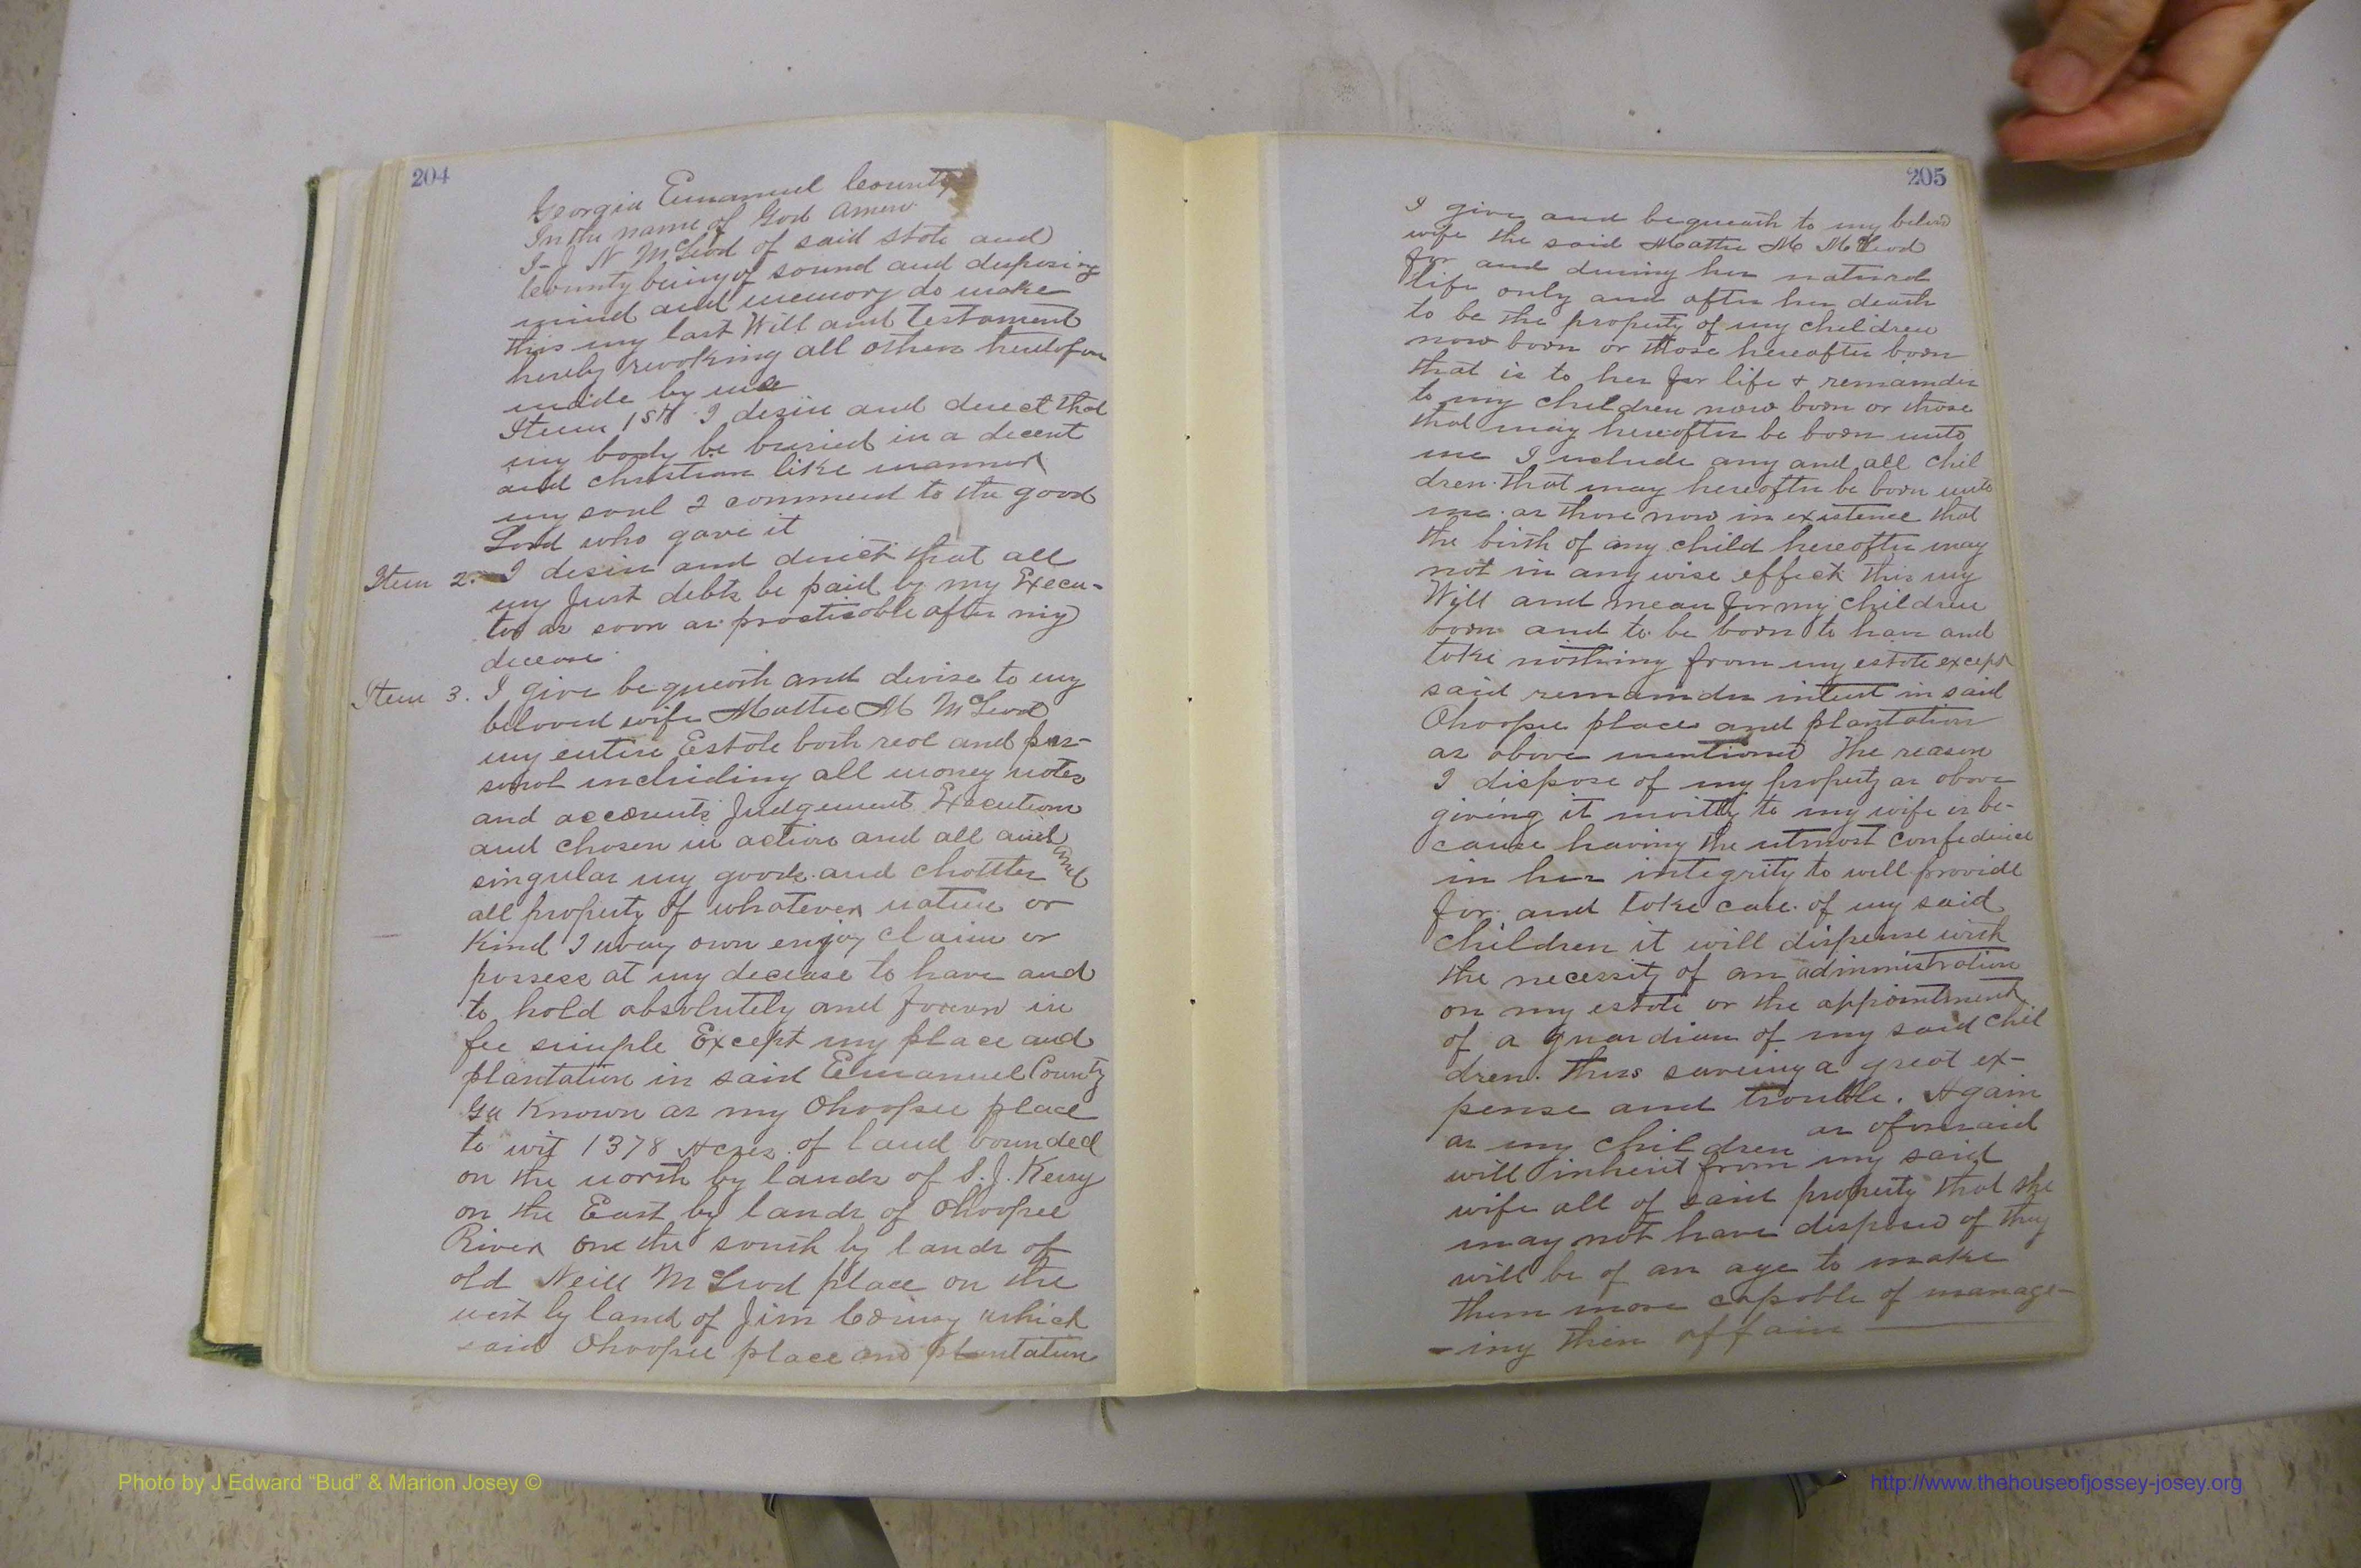 204
Georgia Emanuel County
In the name of God Amen.
I - J N McLeod of said state and
County being of sound and disposing
mind and memory do make
this my last Will and Testament
hereby revoking all others heretofore
made by me
Item 1st I desire and direct that
my body be buried in a decent
and christian like manner
my soul I commend to the good
Lord who gave it
Item 2. I desire and direct that all
my Just debts be paid by my Execu-
tor as soon as practicable after my
decease
Item 3. I give bequeath and devise to my
beloved wife Mattie M McLeod
my entire Estate both real and per-
sonal including all money notes
and accounts Judgement Executions
and chosen in action and all and
singular my goods and chattles and
all property of whatever nature or
Kind I may own enjoy claim or
possess at my decease to have and
to hold absolutely and forever in
fee simple Except my place and
plantation in said Emanuel County
Ga Known as my Ohoopee place
to wit 1378 Acres of land bounded
on the north by lands of S. J. Keny
on the East by lands of Ohoopee
River on the south by lands of
old Neill McLeod place on the
west by land of Jim which
said Ohoopee place and plantation
205
I give and bequeath to my belovd
wife the said Mattie M McLeod
for and during her natural
life only and after her death
to be the property of my children
now born or those hereafter born
that is to her for life + remainder
to my children now born or those
that may hereafter be born unto
me I include any and all chil
dren that may hereafter be born unto
me as those now in existence that
the birth of any child hereafter may
not in any wise effect this my
Will and mean for my children
born and to be born to have and
take nothing from my estate except
said remainder interest in said
Ohoopee place and plantation
as above mentioned The reason
I dispose of my property as above
giving it mostly to my wife is be-
cause having the utmost confidence
in her integrity to will provide
for and take care of my said
children it will dispense with
the necessity of an administration
on my estate or the appointment
of a guardian of my said chil
dren. Thus saveing a great ex-
pense and trouble. Again
as my children as aforesaid
will inherit from my said
wife all of said property that she
may not have disposed of they
will be of an age to make
them more capable of manage-
-ing their affairs
Photo by J Edward “Bud” & Marion Josey ©
http://www.thehouseofjossey-josey.org